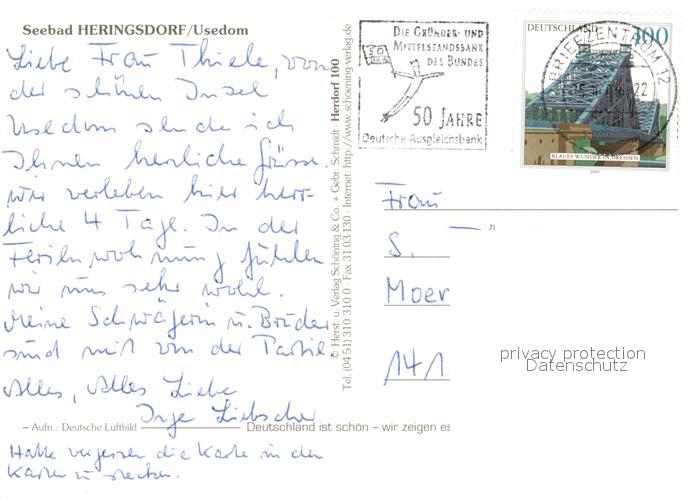 Seebad HERINGSDORF/Usedom
Liebe Frau Thiele, von
der schönen Insel
Usedom sende ich
Ihnen herzliche Grüsse.
wir verleben hier herr-
liche 4 Tage. In der
Ferienwohnung fühlen
wir uns sehr wohl.
Meine Schwägerin u. Bruder
sind mit von der Partie.
Alles, Alles Liebe
Inge Liebscher
– Aufn.: Deutsche Luftbild
Deutschland ist schön – wir zeigen es
Hatte vergessen die Karte in den
Kasten zu stecken.
© Herst. u. Verlag Schöning & Co. + Gebr. Schmidt Herdorf 100
Tel. (04 51) 310 310 0 · Fax 31 03 130 · Internet: http://www.schoening-verlag.de
DIE GRÜNDER- UND
MITTELSTANDSBANK
DES BUNDES
50 JAHRE
Deutsche Ausgleichsbank
DEUTSCHLAND 100
BRIEFZENTRUM 12
22
BLAUES WUNDER IN DRESDEN
2000
Frau
S.
Moer
141
privacy protection
Datenschutz